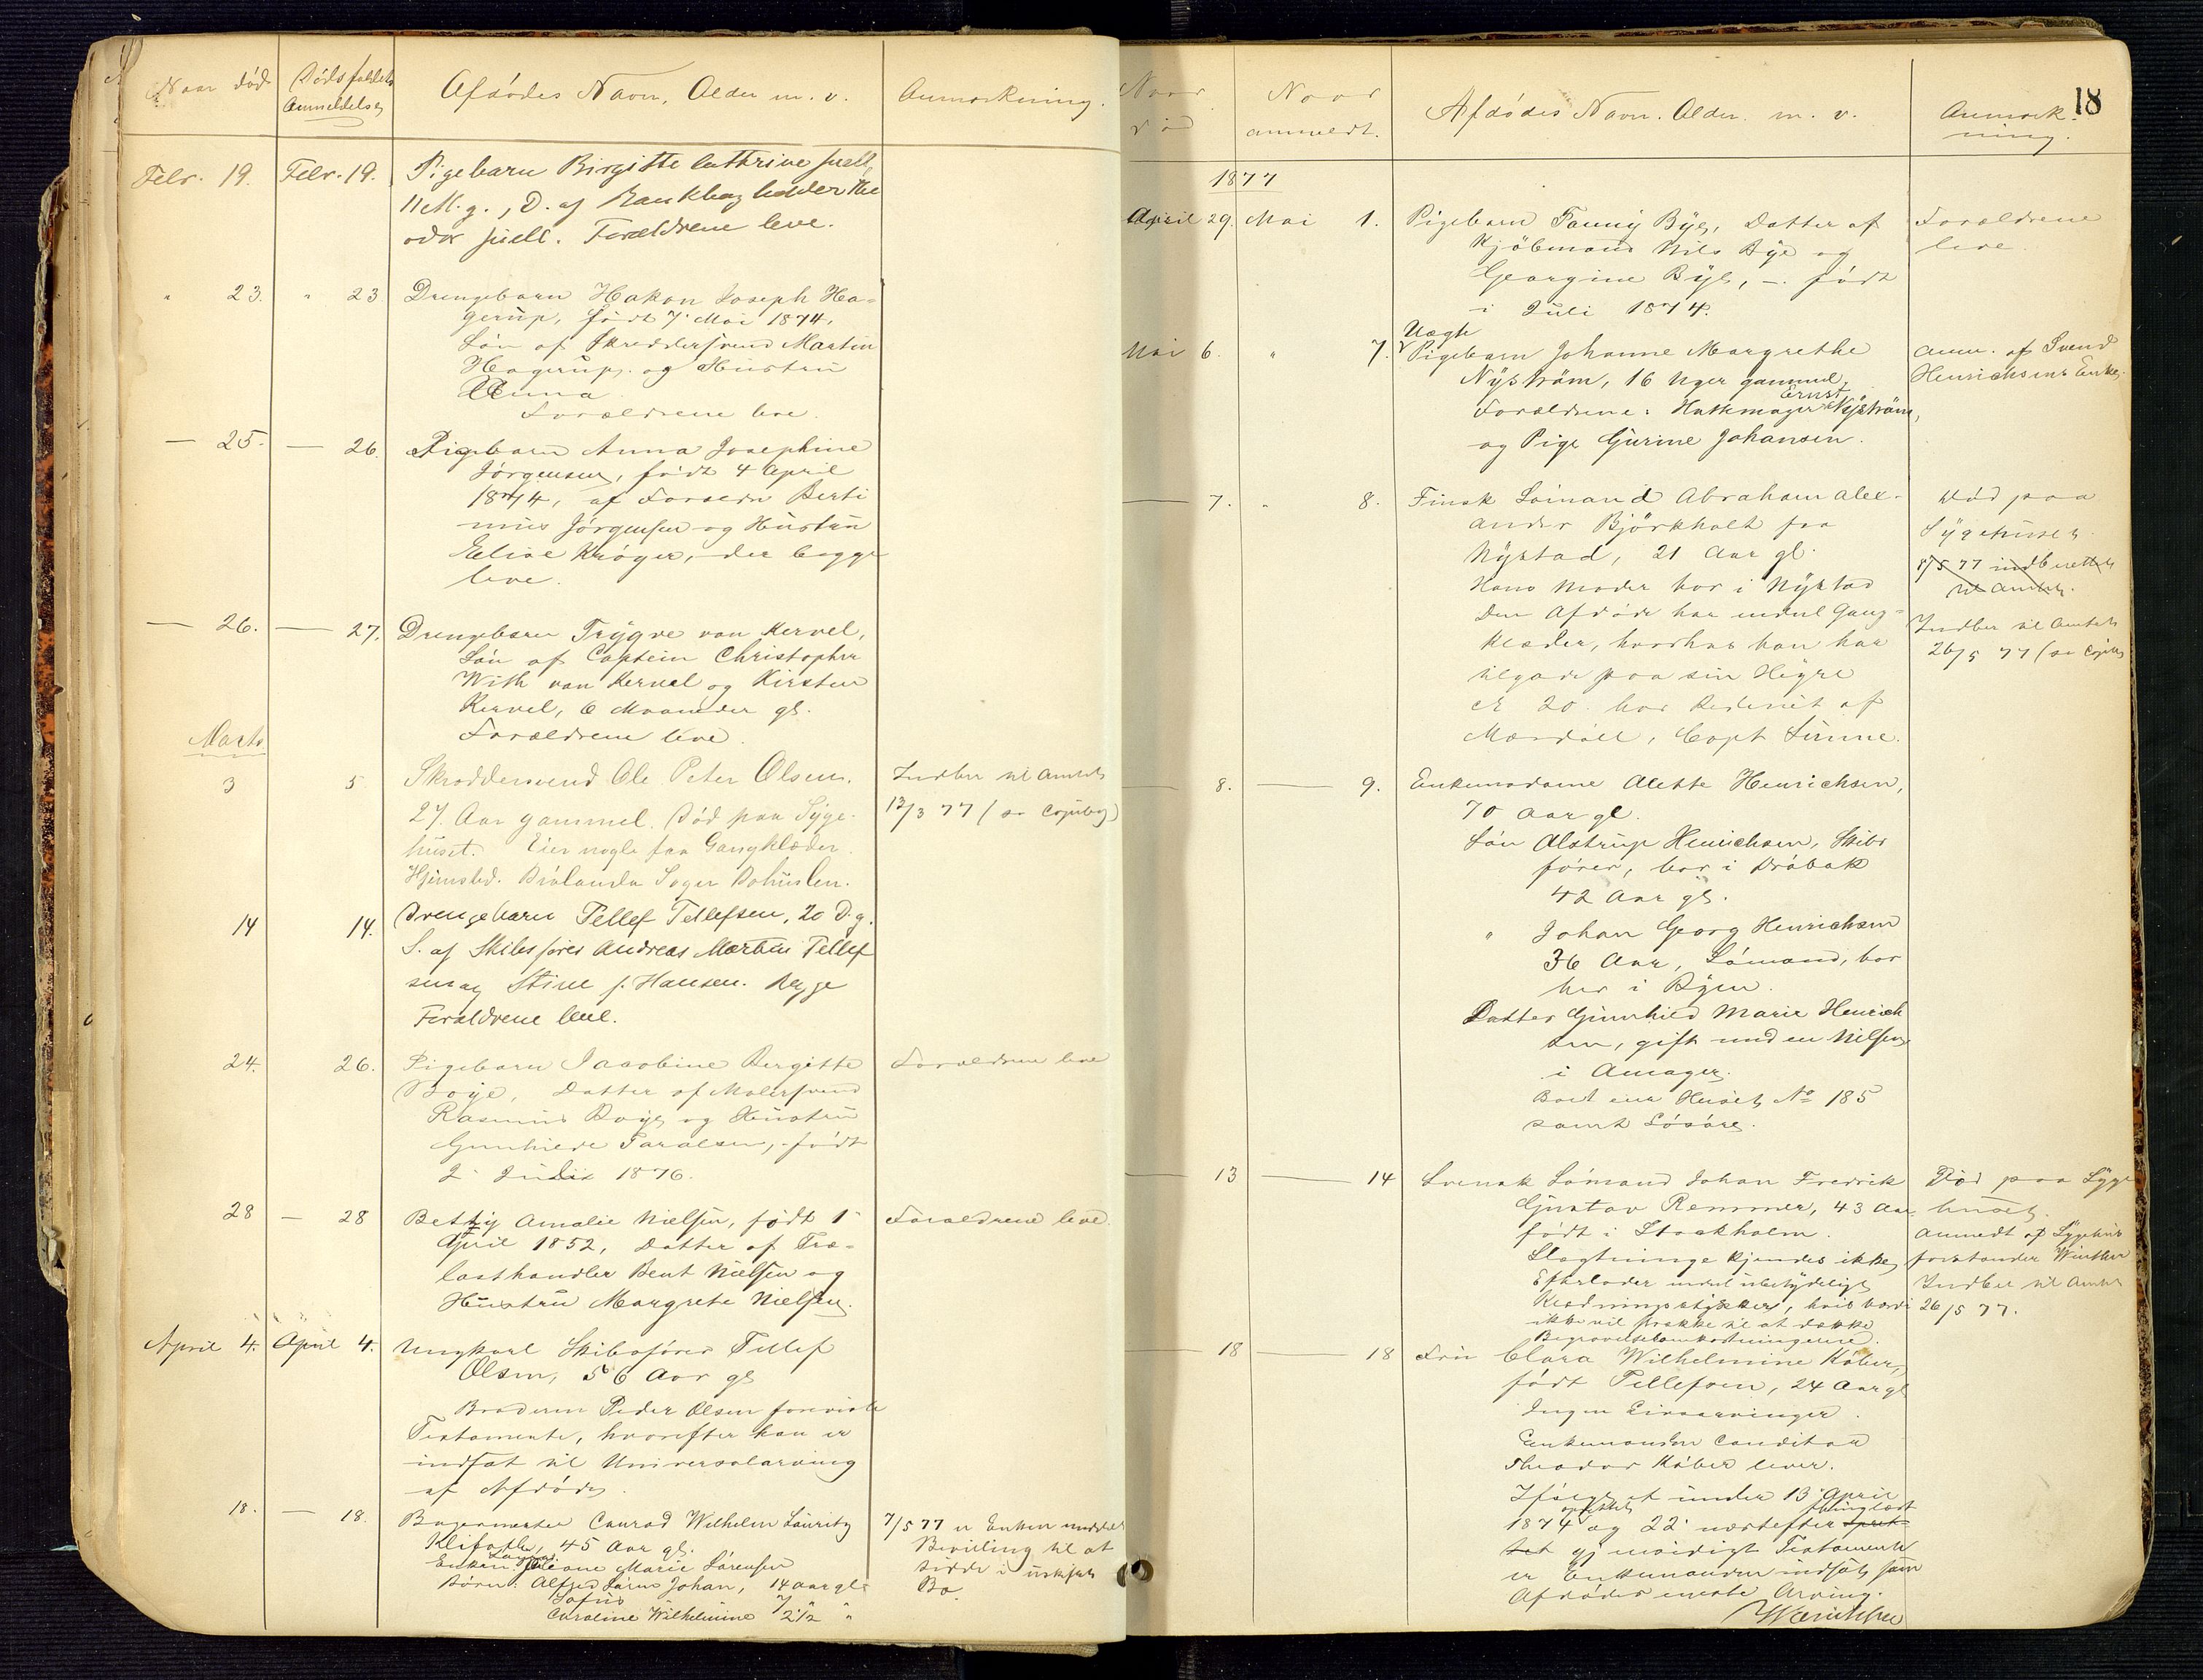 Naar død
Dødsfaldets
Anmeldelse
Afdødes Navn, Alder m. v.
Anmærkning.
Febr. 19. Febr. 19. Pigebarn Birgitte Cathrine
11 M. g., D. af
Forældrene leve.
" 23. " 23 Drengebarn Hakon Joseph Ha-
gerup, født 7' Mai 1874,
Søn af Skreddersvend Martin
Hagerup og Hustru
Anna
Forældrene leve.
— 25. — 26. Pigebarn Anna Josephine
Jørgensen, født 4 April
1874, af Berti
nius Jørgensen og Hustru
Elise Krøger, der begge
leve.
— 26. — 27. Drengebarn Trygve von Kervel,
Søn af Captein Christopher
With von Kervel og Kirsten
Kervel, 6 Maaneder gl.
Forældrene leve
Marts
3 5. Skræddersvend Ole Peter Olsen.
27. Aar gammel. Død paa Syge-
huset. Eier nogle faa Gangklæder.
Hjemsted. Sogn Bohuslen.
Indber. til Amtet
12/3 77 (se Copibog)
14 14. Drengebarn Tellef Tellefsen, 20 D. g.
S. af Skibsfører Andreas Martin Tellef
sen og Stine f. Hansen. Begge
Forældrene leve.
24. 26. Pigebarn Jacobine Bergitte
Boye, Datter af Malersvend
Rasmus Boye og Hustru
Gunhilde Taralsen, født
2' Juli 1876.
Forældrene leve
28 — 28 Betsy Amalie Nielsen, født 1'
April 1852, Datter af Træ-
lasthandler Bent Nielsen og
Hustru Margrete Nielsen.
Forældrene leve.
April 4. April 4. Ungkarl Skibsfører Tellef
Olsen, 56 Aar gl
Broderen Peder Olsen foreviste
Testamente, hvorefter han er
indsat til Universalarving
af Afdøde.
18. — 18. Bagermester Conrad Wilhelm Lauritz
Klifoth, 45 Aar gl.
Enken: Marie Sørensen
Børn: Alfred Johan, 14 aar gl.
Sofus 7 "
Caroline Wilhelmine 2 1/2 "
7/5 77 er Enken meddelt
Bevilling til at
sidde i uskiftet
Bo.
18
Naar
død
Naar
anmeldt.
Afdødes Navn. Alder. m. v.
Anmærk-
ning.
1877
April 29. Mai 1. Pigebarn Fanny Bye, Datter af
Kjøbmand Nils Bye og
Georgine Bye, — født
i Juli 1874.
Forældrene
leve.
Mai 6. " 7. Uægte
Pigebarn Johanne Margrethe
Nyström, 16 Uger gammel,
Forældrene: Hattemager Ernst Nyström,
og Pige Gurine Johansen.
Anm. af Svend
Henrichsens Enke.
— 7. " 8. Finsk Sømand Abraham Alex-
ander Björkholt fra
Nystad, 21 Aar gl.
Hans Moder bor i Nystad
Den Afdøde har endel Gang-
klæder, hvorhos han har
tilgode paa sin Hyre
20. hos Rederiet af
Capt
Død paa
Sygehuset.
8/5 77 indberettet
til Amtet.
Indber til Amtet
26/5 77 (se Copibog
— 8. — 9. Enkemadame Alette Henrichsen,
70 Aar gl.
Søn Alstrup Henrichsen, Skibs
fører, bor i Drøbak
42 Aar gl.
" Johan Georg Henrichsen
36 Aar, Sømand, bor
her i Byen.
Datter Gunhild Marie Henrich
sen, gift med en Nilsen
i Amager.
Boet eier Huset No 185
samt Løsøre.
— 13 — 14 Svensk Sømand Johan Fredrik
Gustav Remmer, 43 Aar.
født i Stockholm.
Slægtninge kjendes ikke
Efterlader endel ubetydelige
Klædningsstykker, hvis Værdi
ikke vil strække til at dække
Begravelsesomkostningerne.
Død paa Syge
huset.
Anmeldt af Sygehus
forstander Winther
Indber til Amtet
26/5 77.
— 18 — 18 Fru Clara Wilhelmine Køber,
født Tellefsen, 24 Aar gl
Ingen Livsarvinger.
Enkemanden Conditor
Theodor Køber lever.
Ifølge et under 13' April
1874 oprettet og 22' næstefter thinglæst
gjensidigt Testamente
er Enkemanden indsat som
Afdødes eneste Arving.